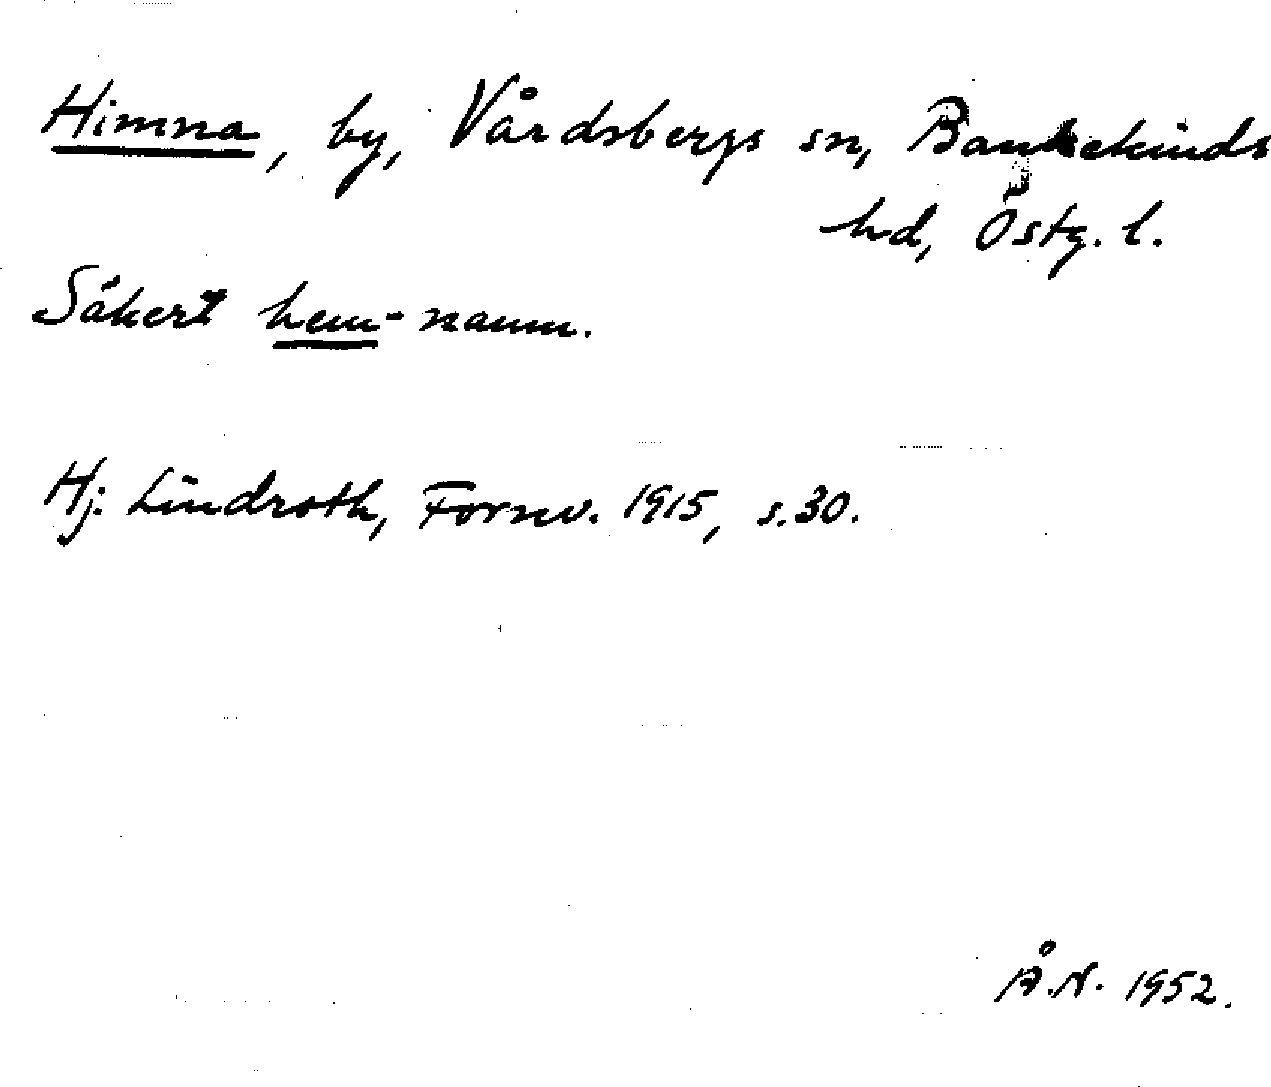 Himna, by, Vårdsbergs sn, Bankekinds
hd, Östg. l.
Säkert hem-namn.
Hj. Lindroth, Fornv. 1915, s. 30.
Å.N. 1952.